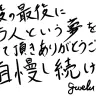 後の最後に
人という夢を
て頂きありがとうご
自慢し続け
Jewel